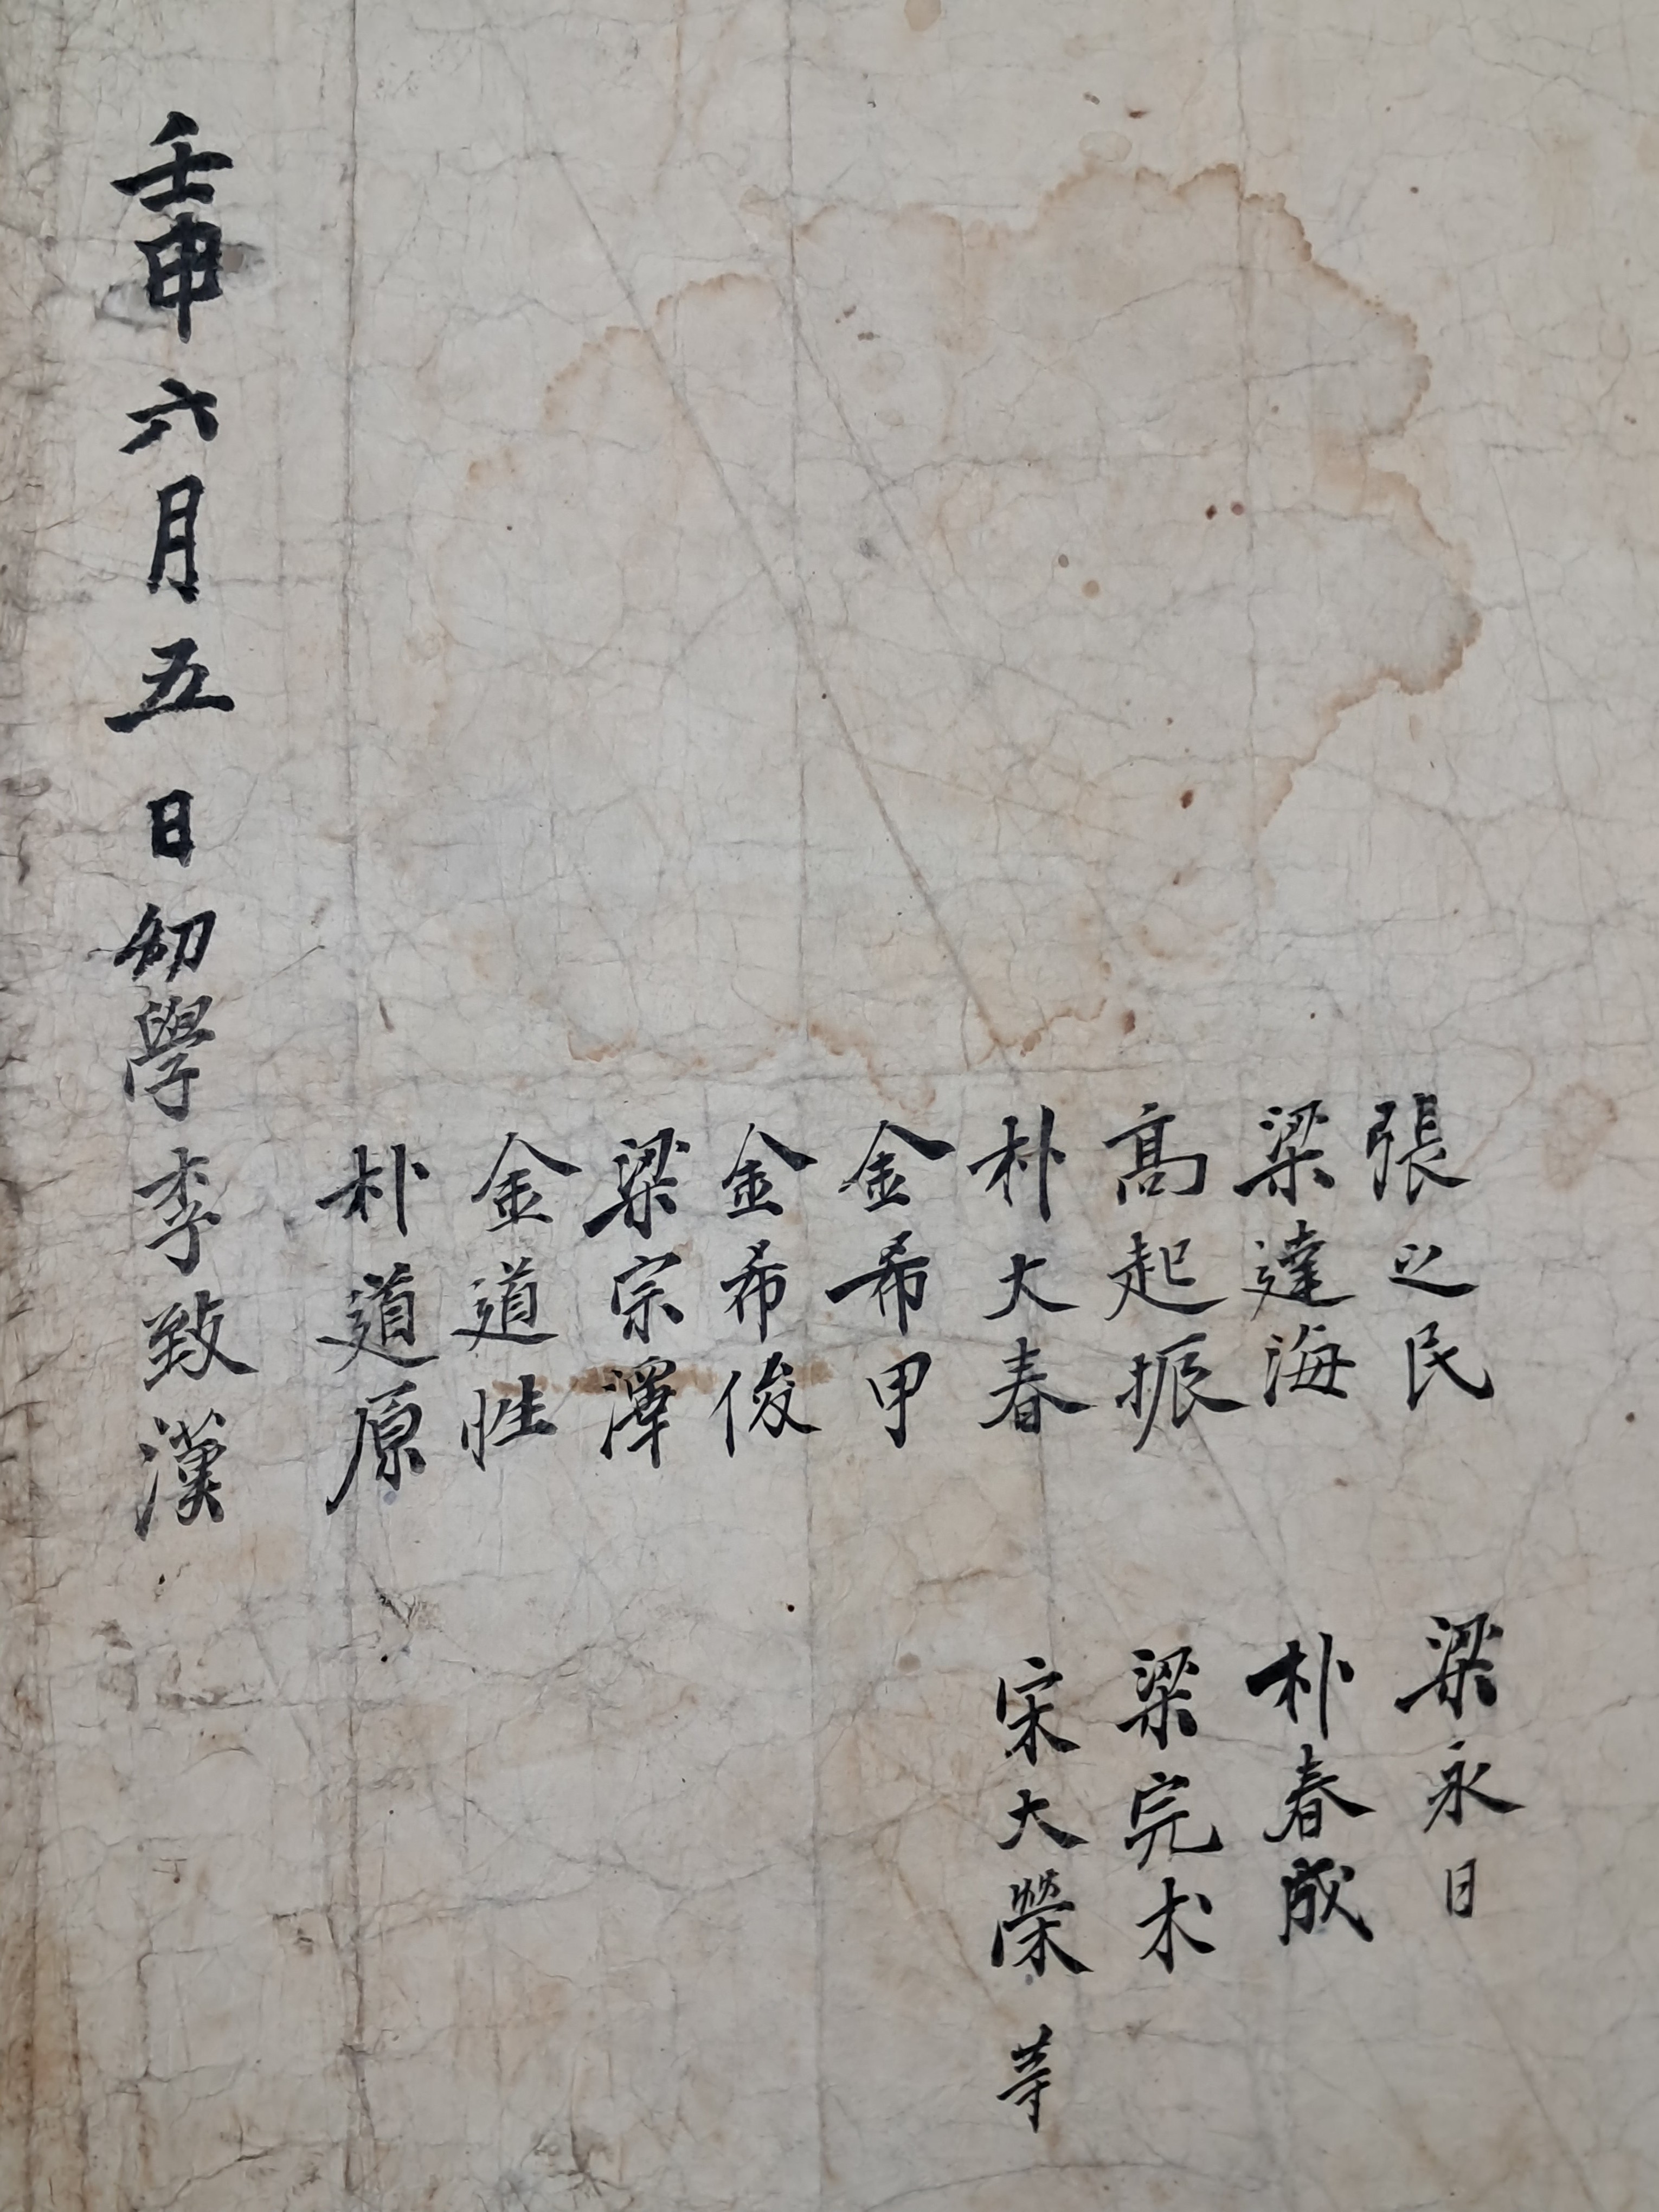 張之民
梁達海
髙起振
朴大春
金希甲
金希俊
梁宗澤
金道性
朴道原
梁永日
朴春成
梁完术
宋大榮 等
壬申六月五日幼學李致漢